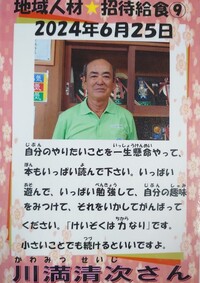 地域人材★招待給食⑨
2024年6月25日
自分のやりたいことを一生懸命やって、
本もいっぱい読んで下さい。いっぱい
遊んで、いっぱい勉強して、自分の趣味
をみつけて、それをいかしてがんばって
ください。「けいぞくは力なり」です。
小さいことでも続けるといいですよ。
川満清次さん